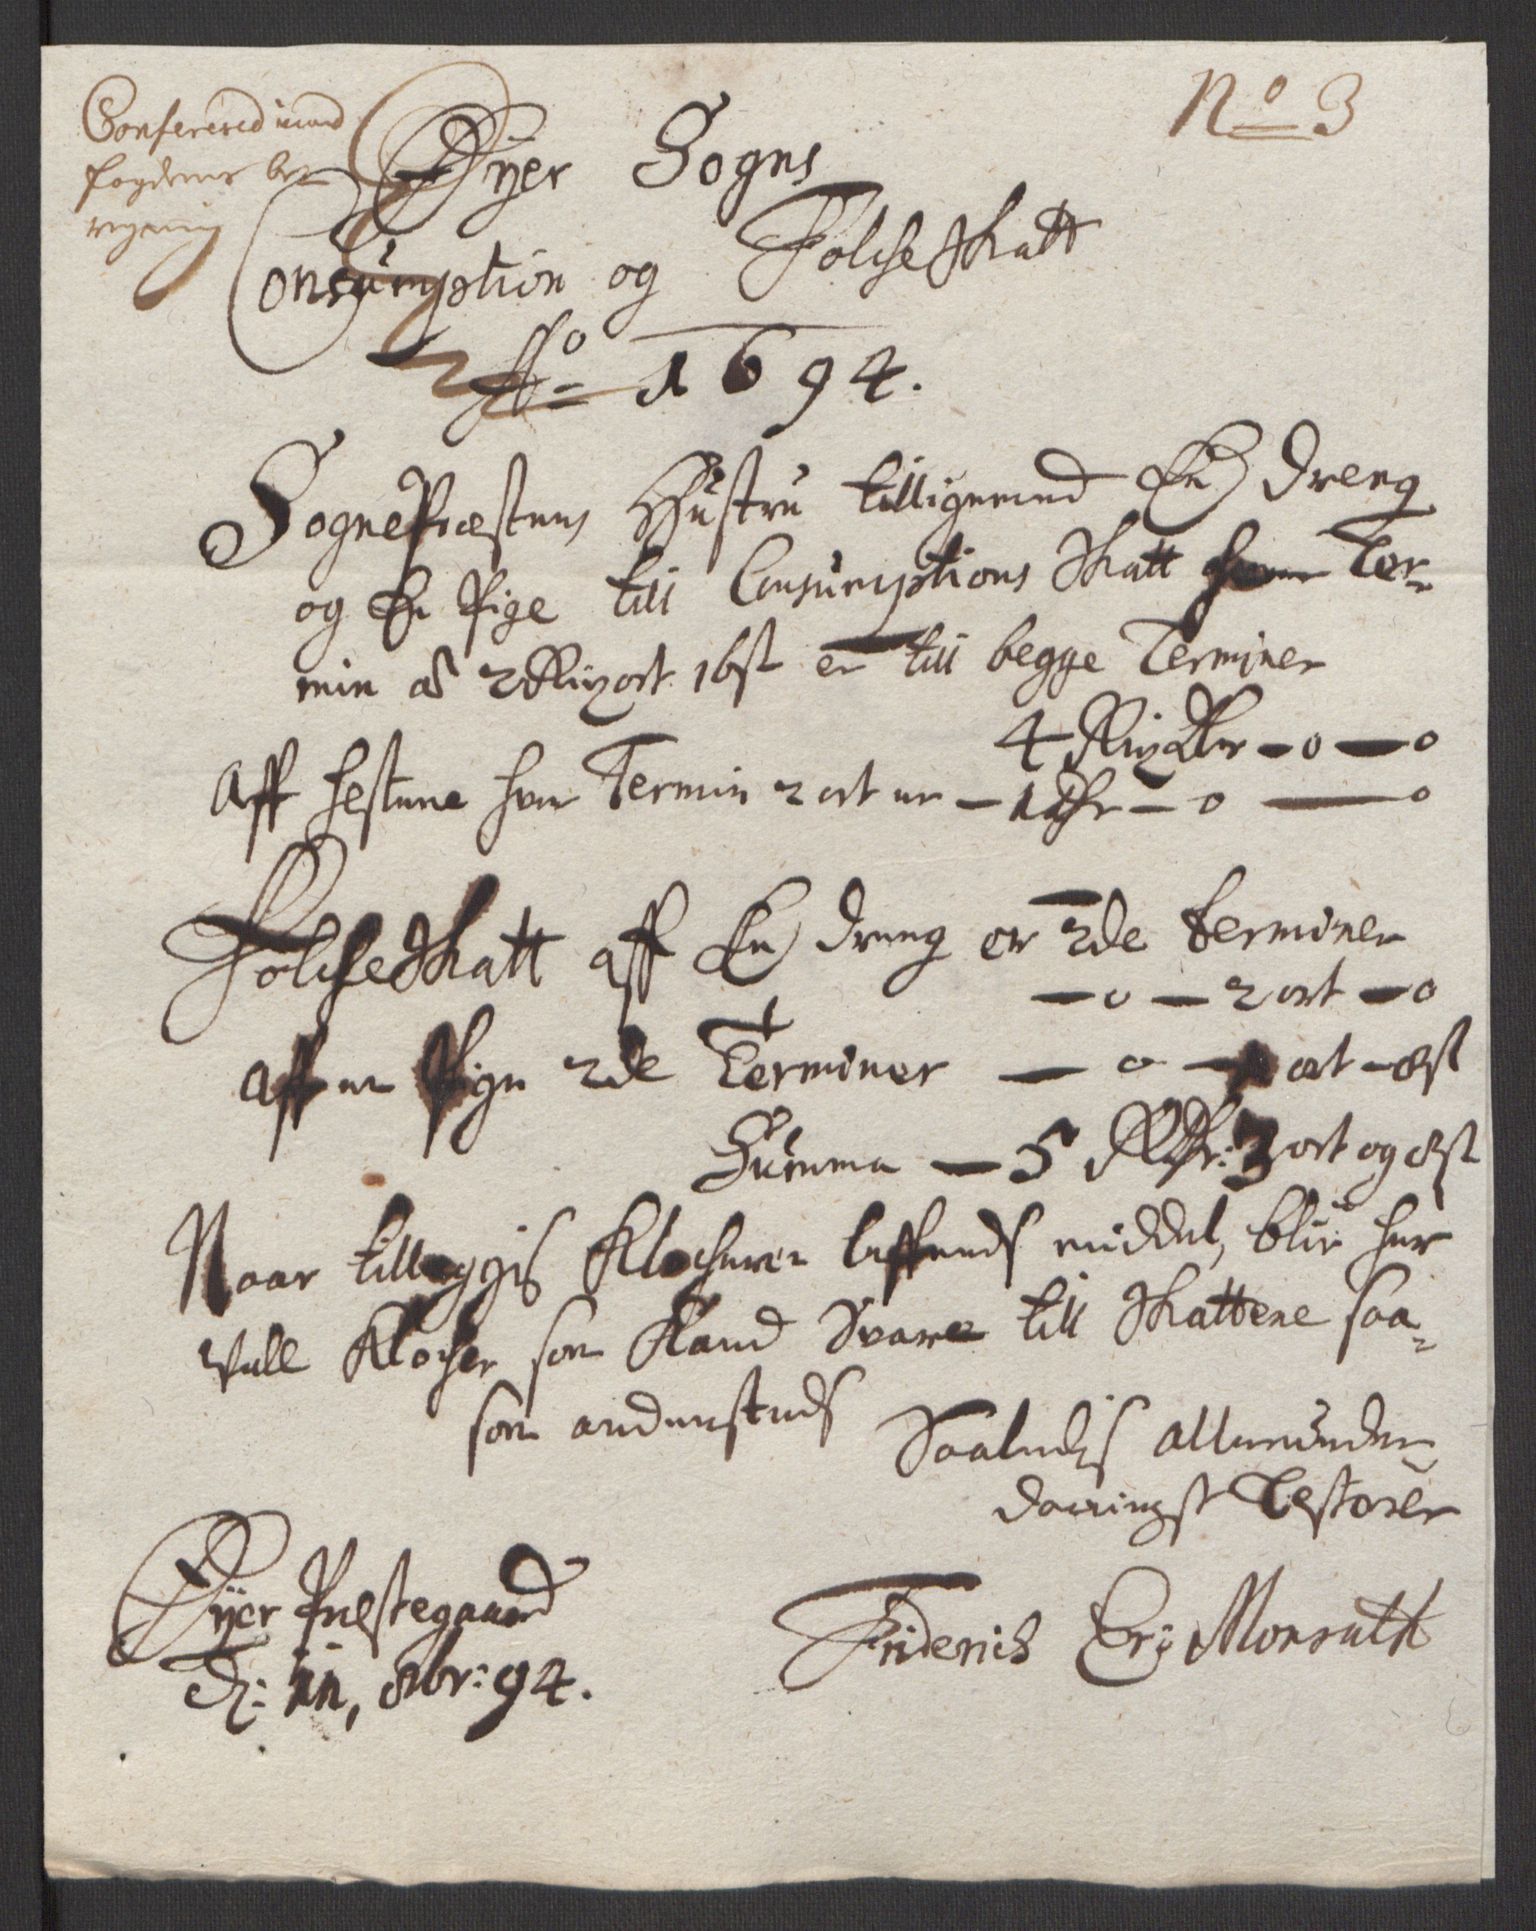 No 3
Confererid med
fogdens be
regning
Ryer Sogns
Consumption og Folcheskatt
Ao 1694.
SognePræstens Hüstru tilligemed En dreng
og En Pige till Consumptions Skatt hver Ter-
min er 2 Rixort 16 st er till begge Terminer
4 Rixdlr - 0 - 0
Aff hestene hver Termin 2 ort er - 1 dlr - 0 - 0
Folcheskatt aff En dreng er 2de terminer
- 0 - 2 ort - 0
Aff en Pige 2de Terminer - 0 - 1 ort - 8 st
Summa - 5 Rdlr: 3 ort og 8 st
Naar tilleggis Klocheren leffends middel, blir her
vell Klocher som kand Svare till Skattene saa-
som andensteds
Saaledis allerunder-
danigst Testerer
Ryer Prestegaard
d: 11, 8br: 94.
Friderich Er: Monrath